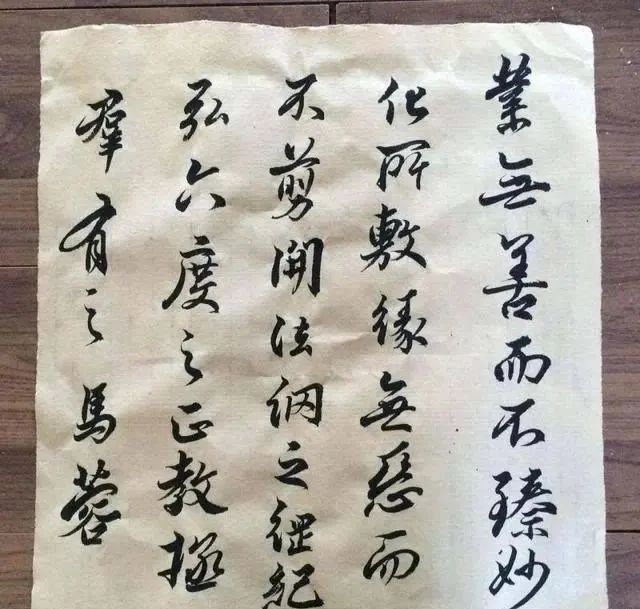 業無善而不臻妙
化所敷緣無惡而
不剪開法網之綱紀
弘六度之正教拯
羣有之馬蓉